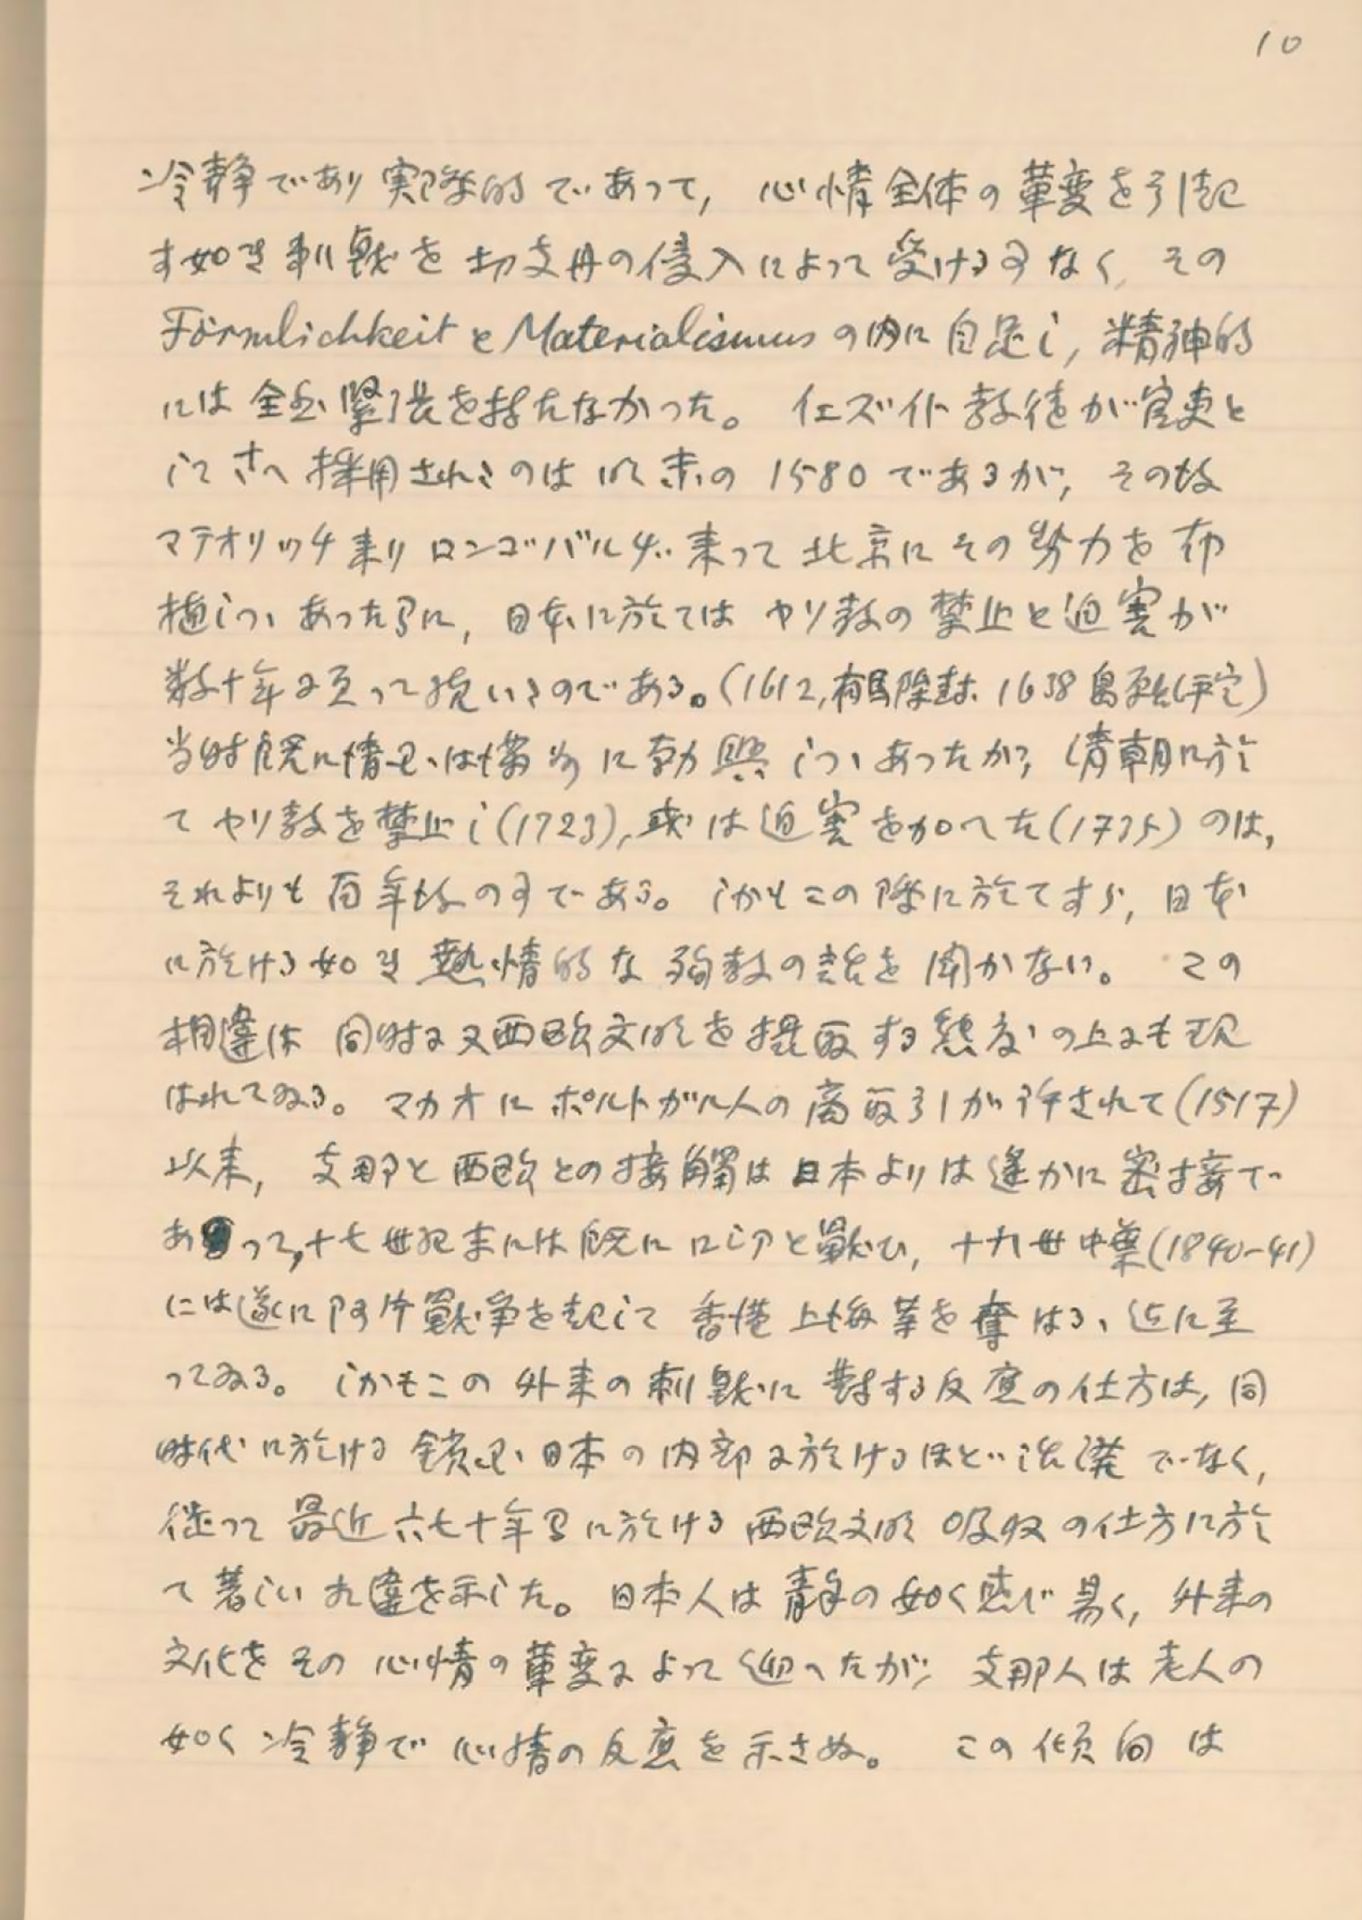 10
冷静であり実際的であって, 心情全体の革変を引起
す如き刺戟を切支丹の侵入によって受ける事なく, その
Förmlichkeit と Materialismus の内に自足し, 精神的
には全然緊張を持たなかった。 イエズイト教徒が官吏と
してさへ採用されたのは明末の1580であるが, その後
マテオリッチ来り ロンゴバルヂ来って北京にその勢力を布
植しつゝあった間に, 日本に於てはヤソ教の禁止と迫害が
数十年に亙って続いたのである。(1612,有馬除封. 1638島原乱平定)
当時既に情死は に勃興しつゝあったが, 清朝に於
てヤソ教を禁止し(1723), 或は迫害を加へた(1775)のは,
それよりも百年後の事である。しかもこの際に於てすら, 日本
に於ける如き熱情的な殉教の話を聞かない。 この
相違は同時に又西欧文明を摂取する態度の上にも現
はれてゐる。 マカオにポルトガル人の商取引が許されて(1517)
以来, 支那と西欧との接觸は日本よりは遙かに密接で
あって,十七世紀末には既にロシアと戰ひ, 十九世中葉(1840-41)
には遂に阿片戰争を起して香港上海等を奪はるゝ迄に至
ってゐる。 しかもこの外来の刺戟に對する反應の仕方は, 同
時代に於ける鎖国日本の内部に於けるほど活溌でなく,
従って最近六七十年間に於ける西欧文明吸収の仕方に於
て著しい相違を示した。日本人は青年の如く感じ易く, 外来の
文化をその心情の革変によって迎へたが, 支那人は老人の
如く冷静で心情の反應を示さぬ。 この傾向は